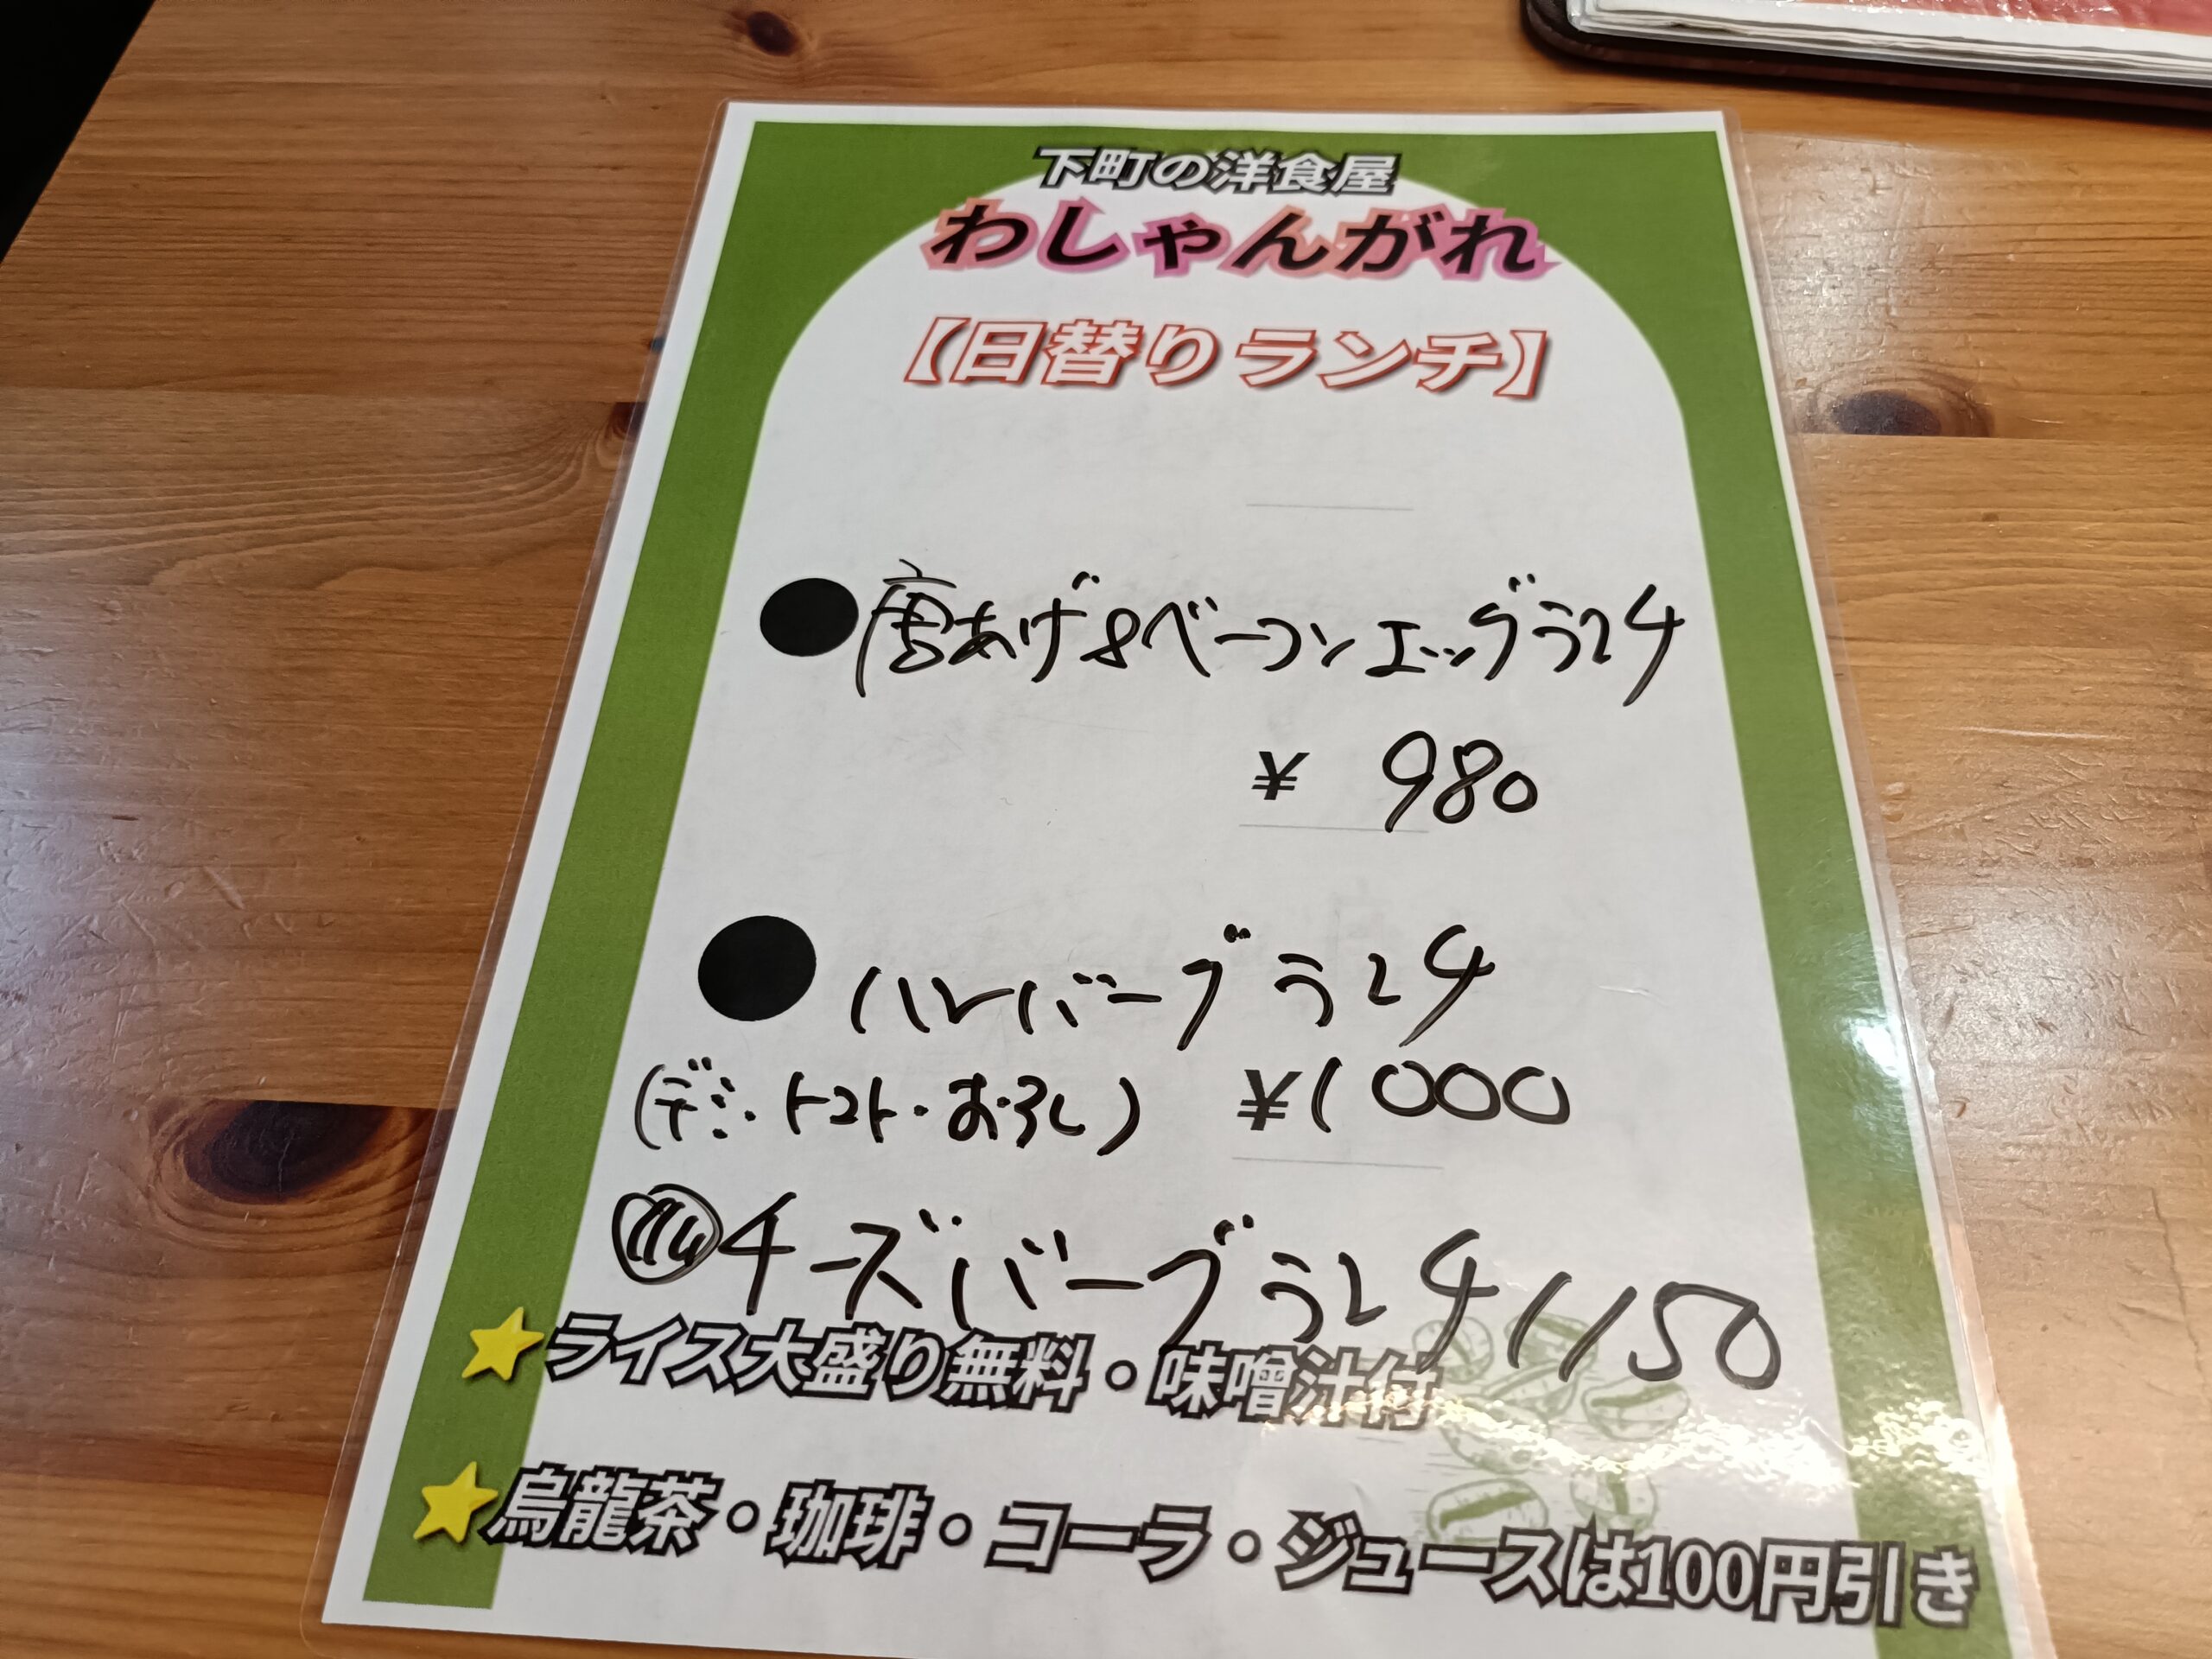 下町の洋食屋
わしゃんがれ
【日替りランチ】
●唐あげ&ベーコンエッグランチ
¥ 980
●ハンバーグランチ
(デミ・トマト・おろし) ¥1000
チーズバーグランチ1150
★ライス大盛り無料・味噌汁付
★烏龍茶・珈琲・コーラ・ジュースは100円引き